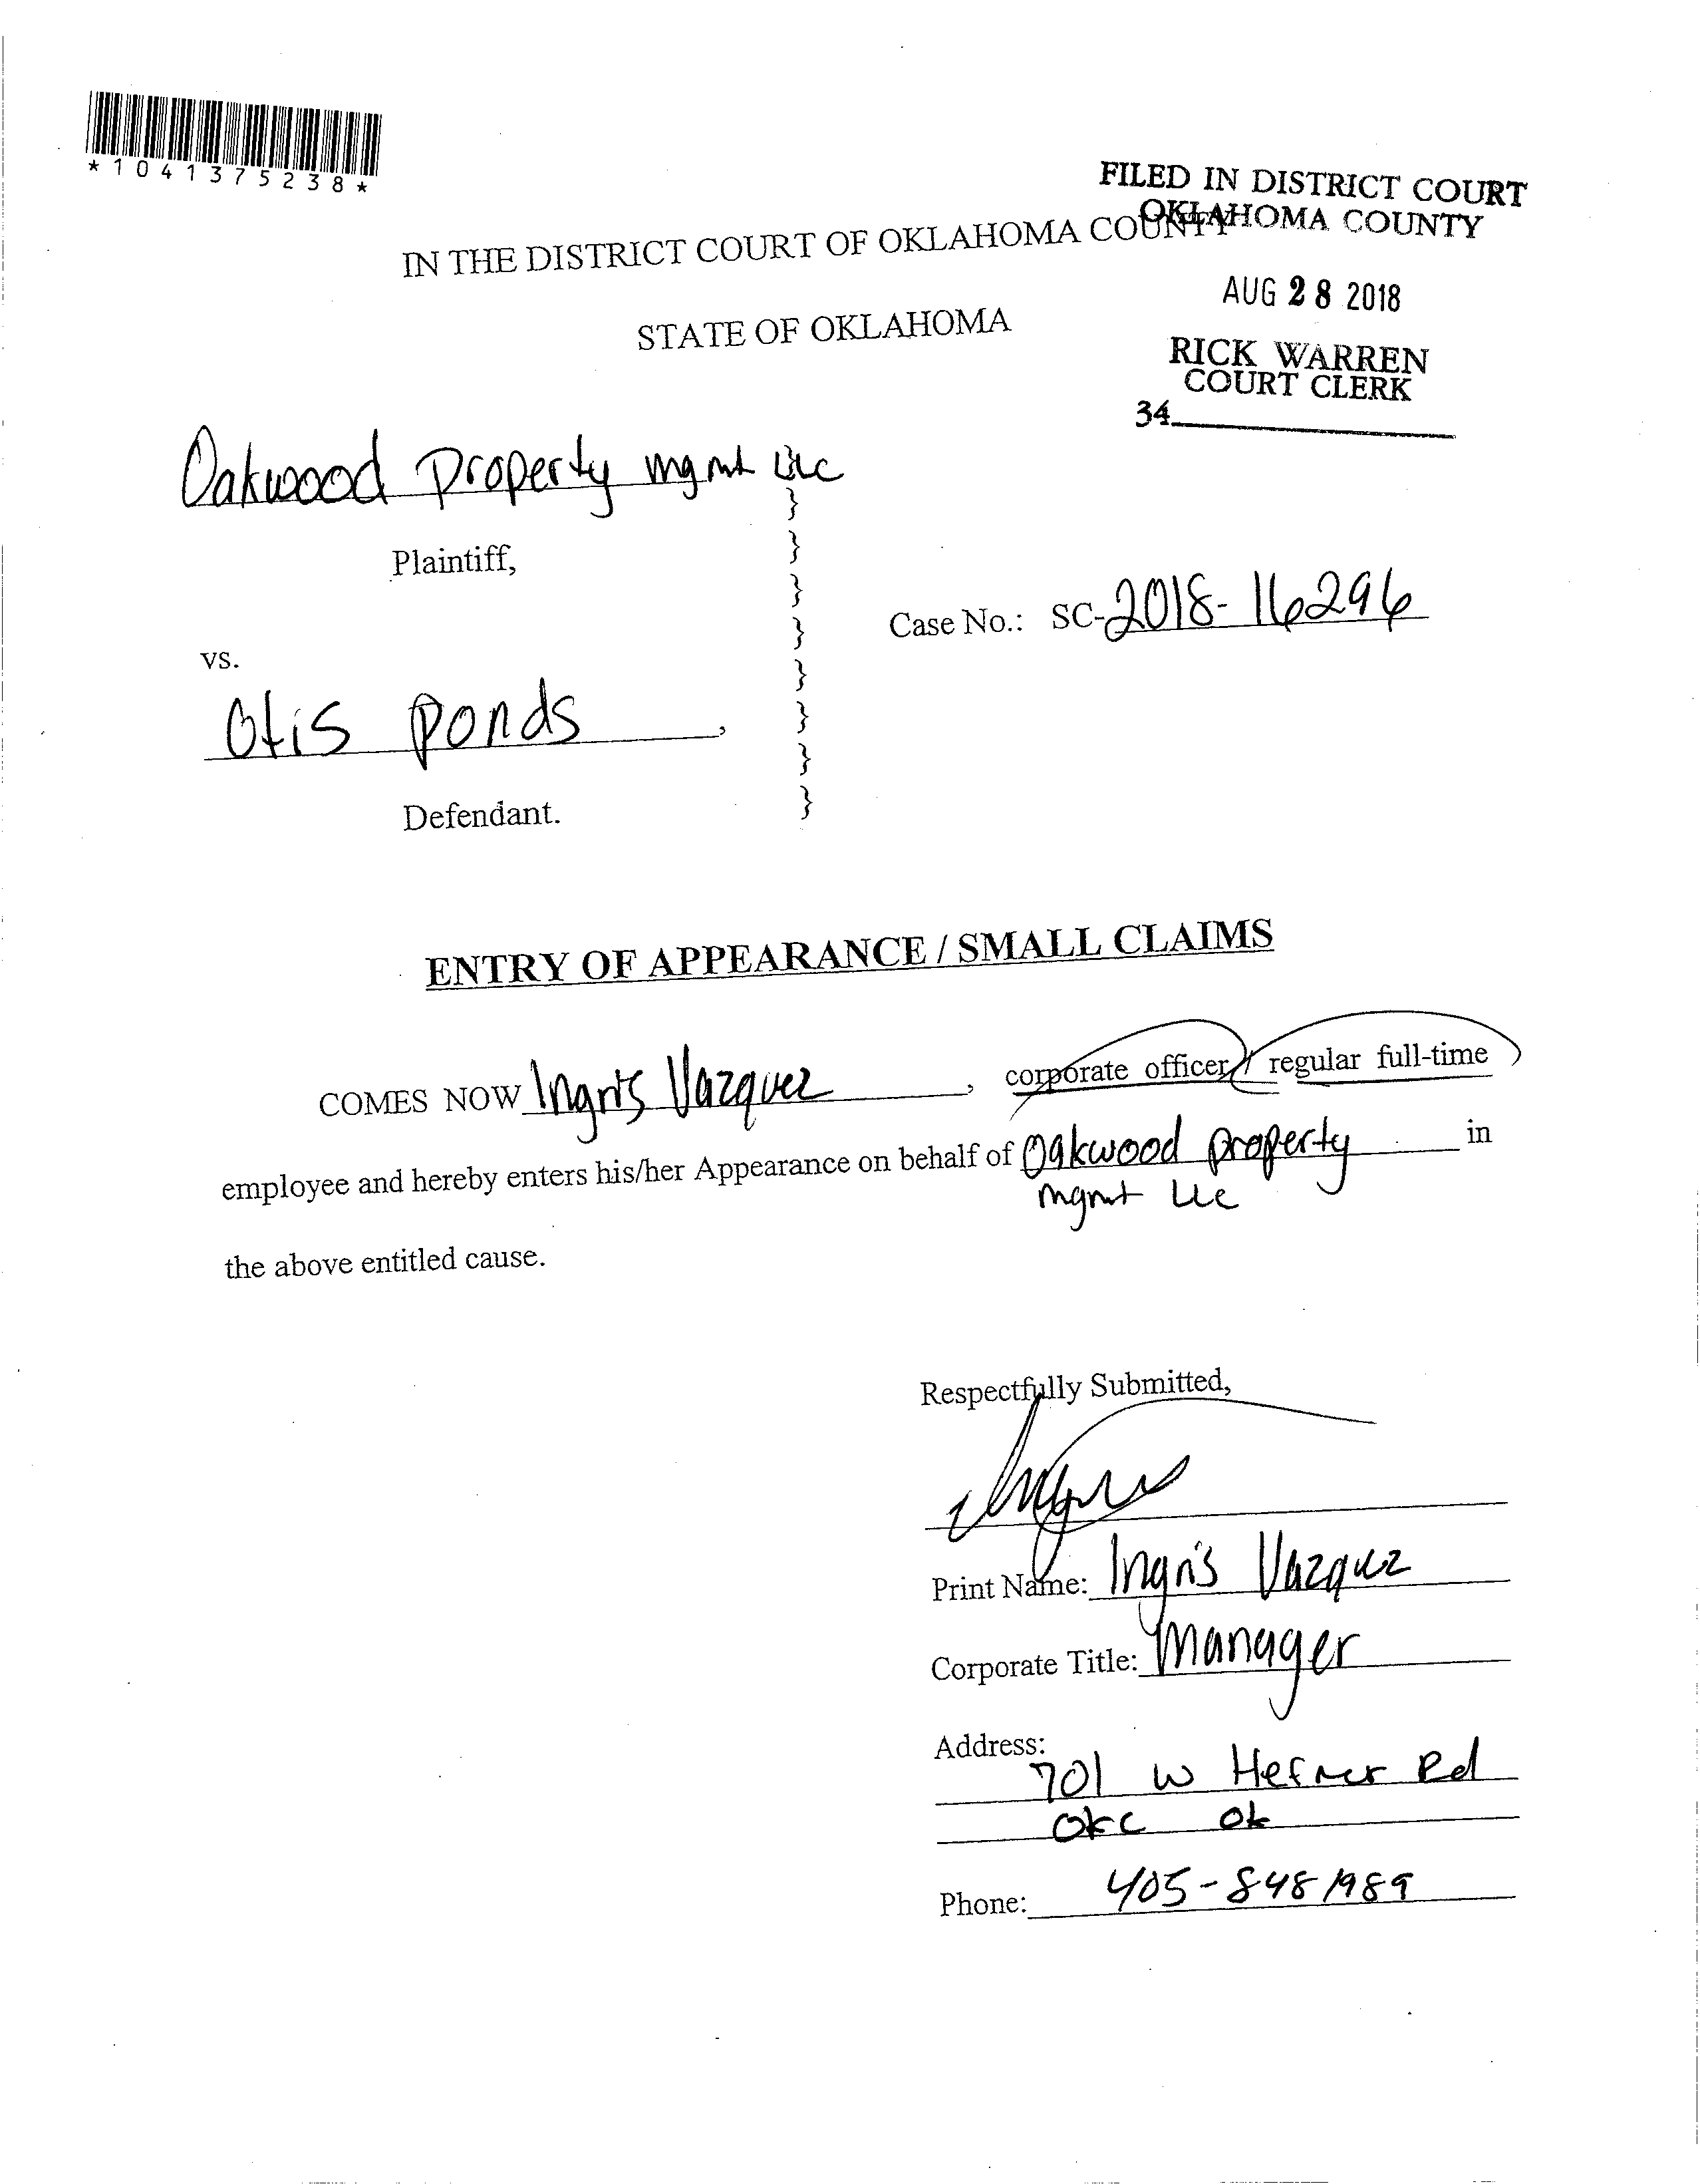 *1041375238*
FILED IN DISTRICT COURT
OKLAHOMA COUNTY
IN THE DISTRICT COURT OF OKLAHOMA COUNTY
AUG 28 2018
STATE OF OKLAHOMA
RICK WARREN
COURT CLERK
34
Oakwood Property mgmt LLC
}
Plaintiff,
}
}
Case No.: SC-2018-16296
}
vs.
}
Otis ponds,
}
}
Defendant.
}
ENTRY OF APPEARANCE / SMALL CLAIMS
COMES NOW Ingris Vazquez, corporate officer / regular full-time
employee and hereby enters his/her Appearance on behalf of Oakwood property in
mgmt LLC
the above entitled cause.
Respectfully Submitted,
Print Name: Ingris Vazquez
Corporate Title: Manager
Address:
701 W Hefner Rd
OKC OK
Phone: 405-848 1989